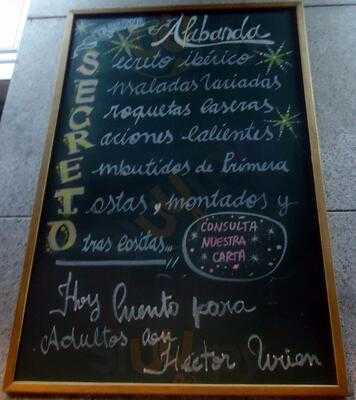 Alabanda
Secreto ibérico
Ensaladas Variadas
Croquetas Caseras
Raciones Calientes
Embutidos de Primera
Tostas, montados y
Otras Cositas...
CONSULTA
NUESTRA
CARTA
Hoy Cuento para
Adultos con
Hector Urien